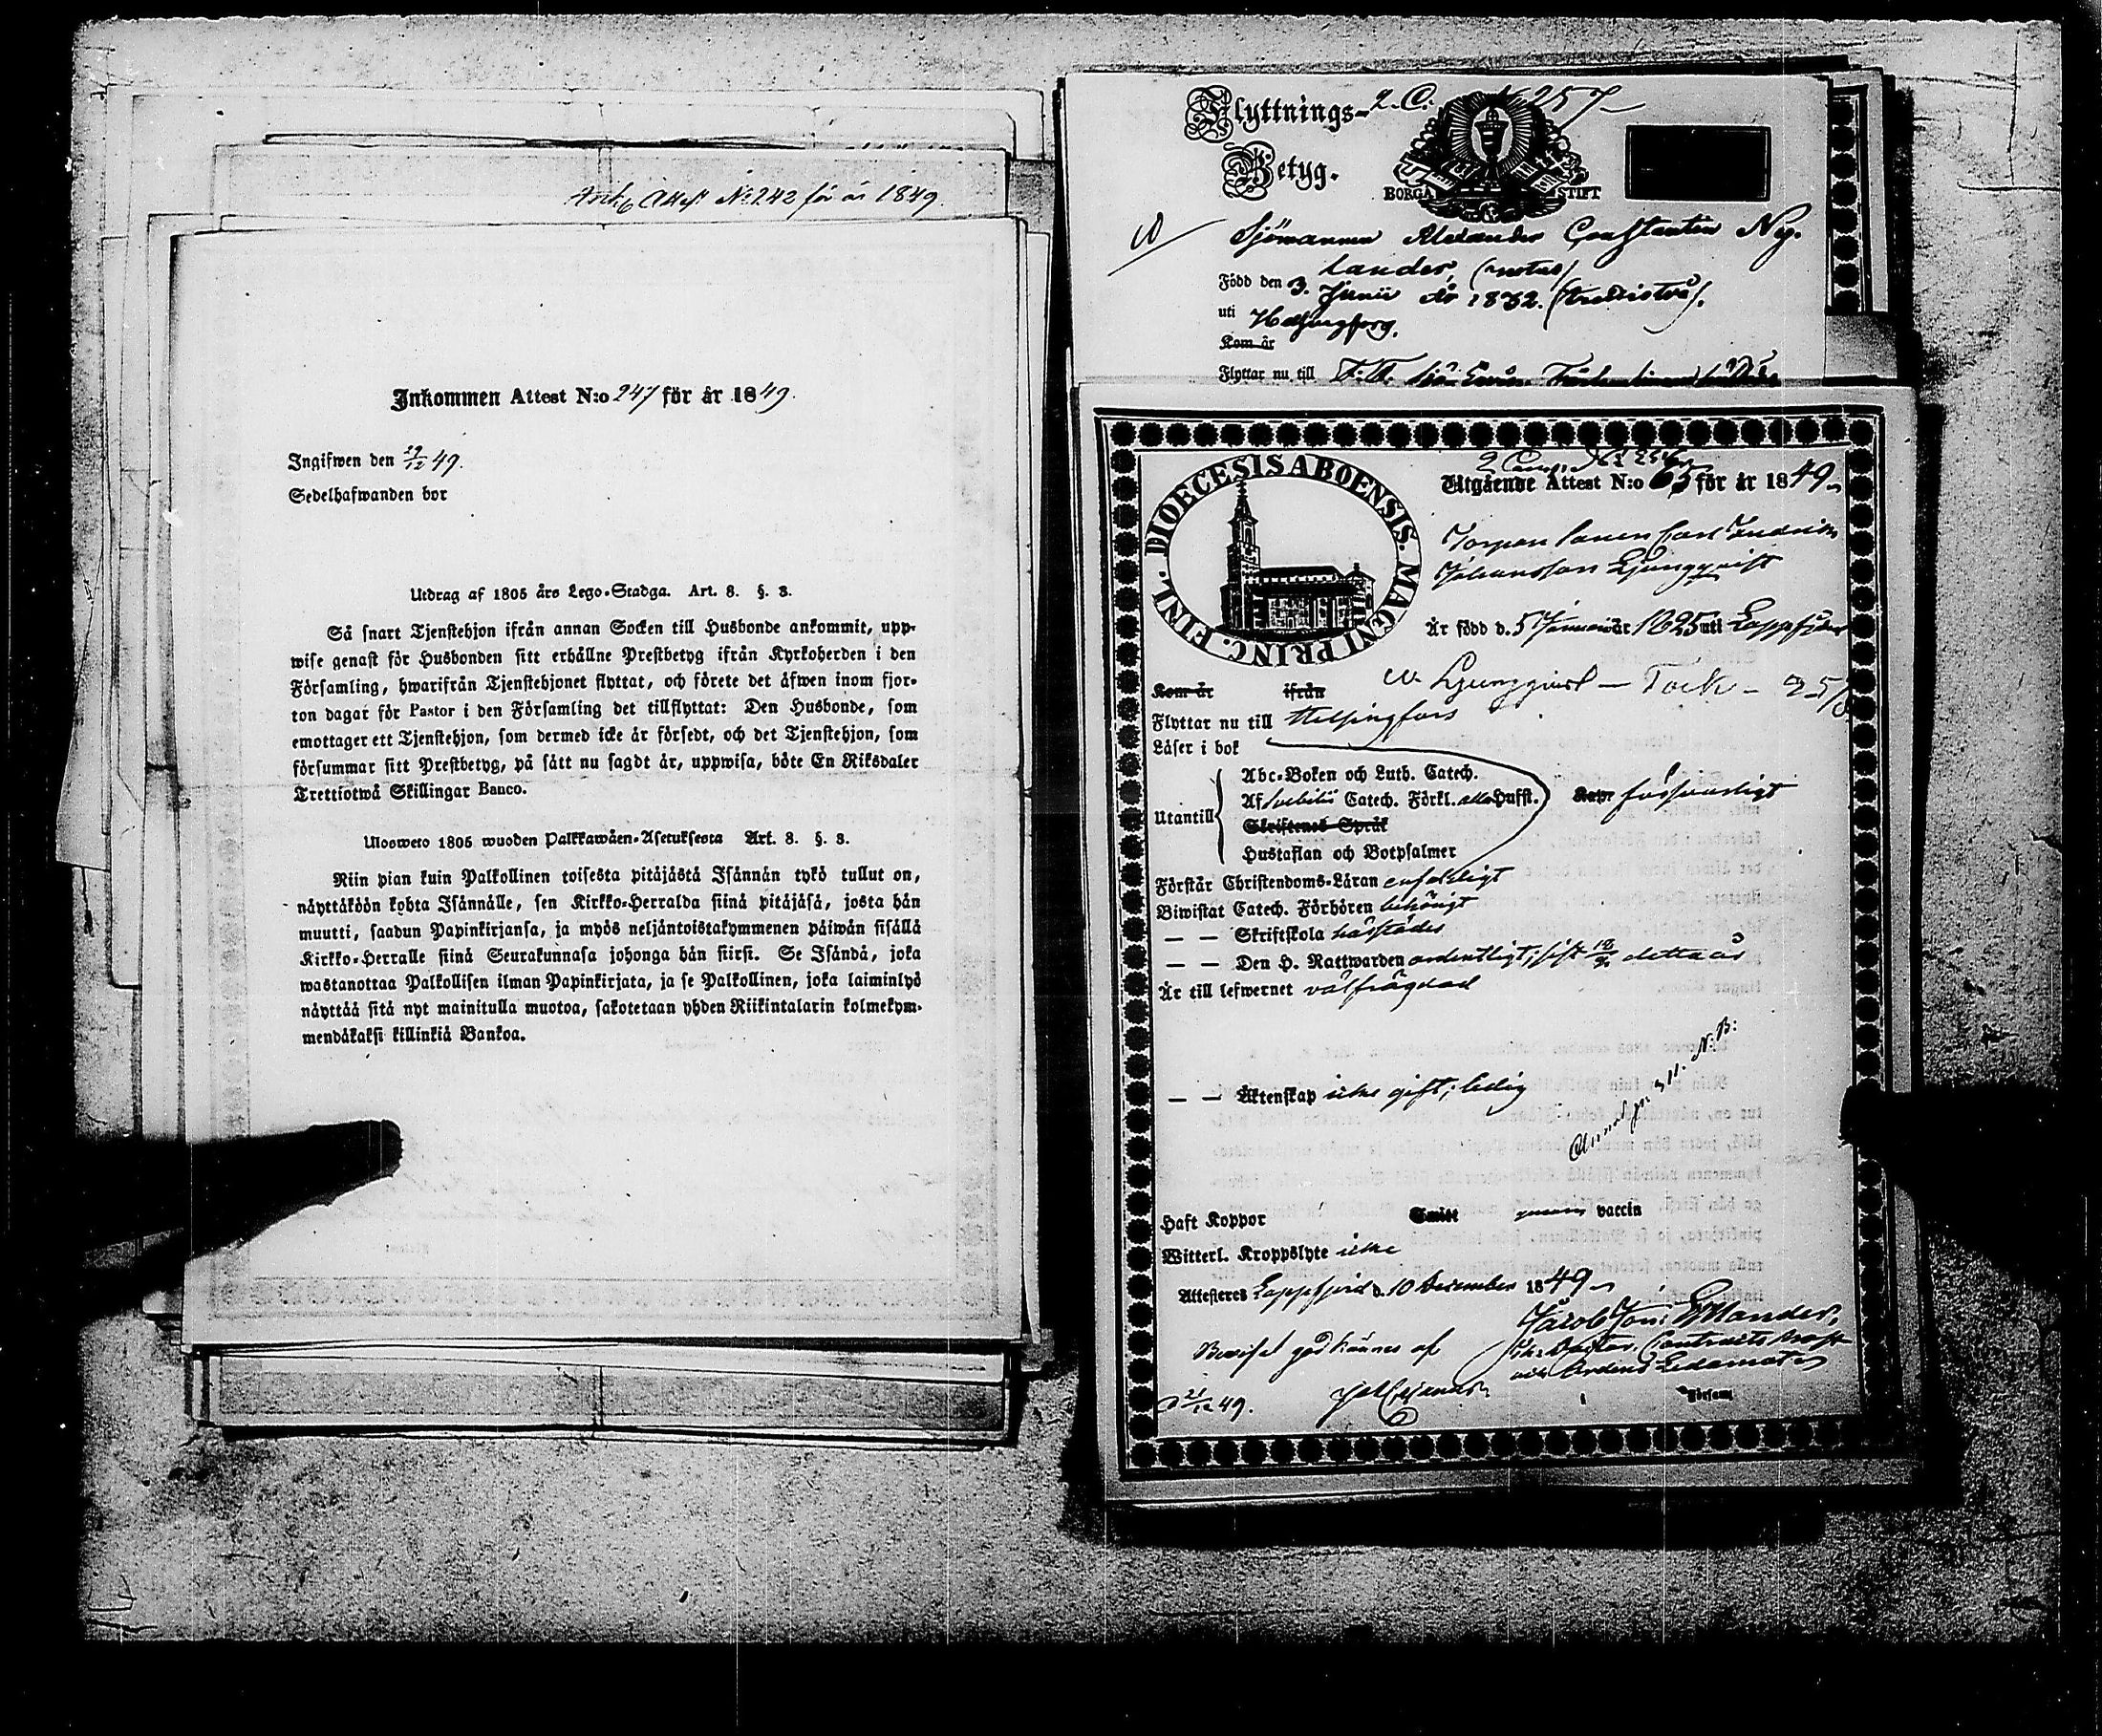 Ank. Attest No 242 för år 1849.
Inkommen Attest N:o 247 för år 1849.
Ingifwen den 29/12 49.
Sedelhafwanden bor
Utdrag af 1805 års Lego-Stadga. Art. 8. §. 3.
Så snart Tjenstehjon ifrån annan Socken till Husbonde ankommit, upp-
wise genast för Husbonden sitt erhållne Prestbetyg ifrån Kyrkoherden i den
Församling, hwarifrån Tjenstehjonet flyttat, och förete det äfwen inom fjor-
ton dagar för Pastor i den Församling det tillflyttat: Den Husbonde, som
emottager ett Tjenstehjon, som dermed icke är försedt, och det Tjenstehjon, som
försummar sitt Prestbetyg, på sätt nu sagdt är, uppwisa, böte En Riksdaler
Trettiotwå Skillingar Banco.
Uloosweto 1805 wuoden Palkkawäen-Asetuksesta Art. 8. §. 3.
Niin pian kuin Palkollinen toisesta pitäjästä Isännän tykö tullut on,
näyttäköön kohta Isännälle, sen Kirkko-Herralda siinä pitäjäsä, josta hän
muutti, saadun Papinkirjansa, ja myös neljäntoistakymmenen päiwän sisällä
Kirkko-Herralle siinä Seurakunnasa johonga hän siirsi. Se Isändä, joka
wastanottaa Palkollisen ilman Papinkirjata, ja se Palkollinen, joka laiminlyö
näyttää sitä nyt mainitulla muotoa, sakotetaan yhden Riikintalarin kolmekym-
mendäkaksi killinkiä Bankoa.
Flyttnings- 2. C. 257
Betyg.
BORGÅ STIFT
Sjömannen Alexander Constantin Ny-
lander, (notus)
Född den 3. Junii år 1832. (trettiotvå).
uti Helsingfors.
Kom år
Flyttar nu till
DIOECESIS ABOENSIS. MAGNI PRINC. FINL.
Utgående Attest N:o 65 för år 1849
Carl
Johansson Ljungqvist
Är född d. 5 Januari år 1825 uti Lappfjerd
Ljungqvist — Tock — 25/
Kom år ifrån
Flyttar nu till Helsingfors
Läser i bok
Utantill
Abc-Boken och Luth. Catech.
Af Svebilii Catech. Förkl. alla Hufst. försvarligt
Skriftenes Språk
Hustaflan och Botpsalmer
Förstår Christendoms-Läran enfaldigt
Biwistat Catech. Förhören behörigt
— — Skriftskola härstädes
— — Den H. Nattwarden ordentligt; sist detta år
Är till lefwernet välfrägdad
N:B:
— — Äktenskap icke gift; ledig
Haft Koppor Smitt genom vaccin
Witterl. Kroppslyte icke
Attesteras Lappfjerd d. 10 December 1849
Jacob Jon: Estlander,
Pastor, Contracts Prost
och Ordens Ledamot
Beviset godkännes af
d 21/12 49.
Försam